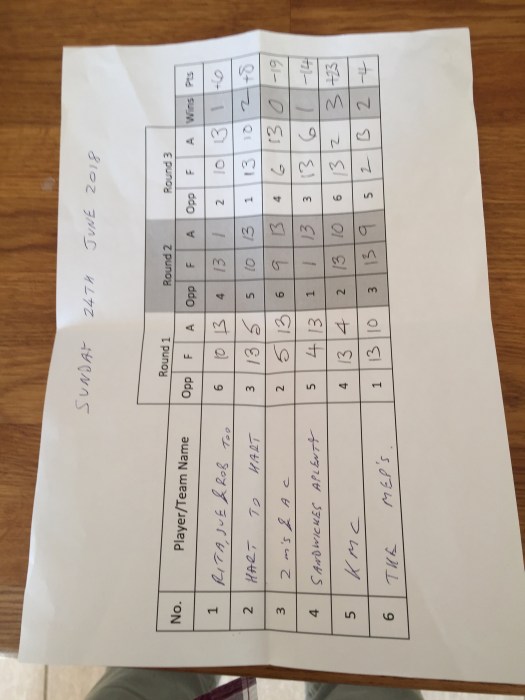 SUNDAY 24TH JUNE 2018
Round 1 Round 2 Round 3
No. Player/Team Name Opp F A Opp F A Opp F A Wins Pts
1 RITA, SUE & ROB TOO 6 10 13 4 13 1 2 10 13 1 +6
2 HART TO HART 3 13 5 5 10 13 1 13 10 2 +8
3 2 M'S & A C 2 5 13 6 9 13 4 6 13 0 -19
4 SANDWICHES APLENTY 5 4 13 1 1 13 3 13 6 1 -14
5 KMC 4 13 4 2 13 10 6 13 2 3 +23
6 THE MEP'S. 1 13 10 3 13 9 5 2 13 2 -4